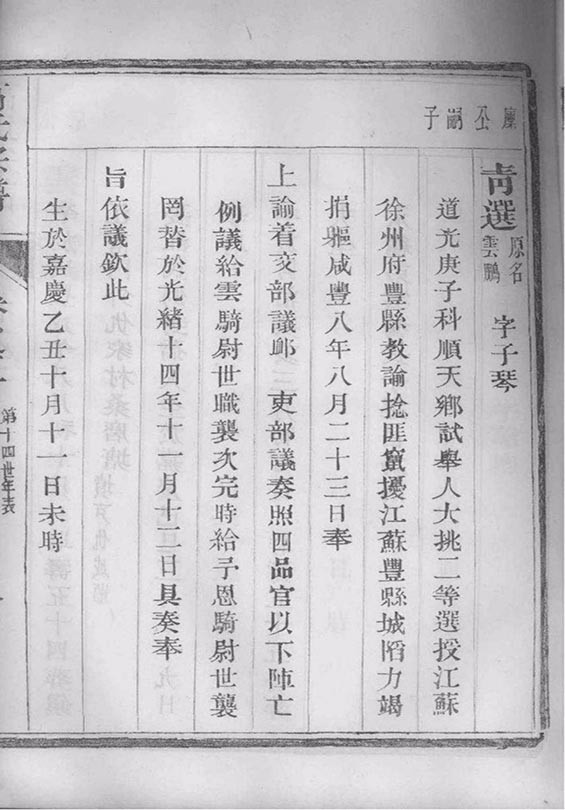 廩公嗣子
青選原名雲鵬字子琴
道光庚子科順天鄉試舉人大挑二等選授江蘇
徐州府豐縣教諭捻匪竄擾江蘇豐縣城陷力竭
捐軀咸豐八年八月二十三日奉
上諭着交部議卹 吏部議奏照四品官以下陣亡
例議給雲騎尉世職襲次完時給予恩騎尉世襲
罔替於光緒十四年十一月十二日具奏奉
旨依議欽此
生於嘉慶乙丑十月十一日未時
第十四世年表